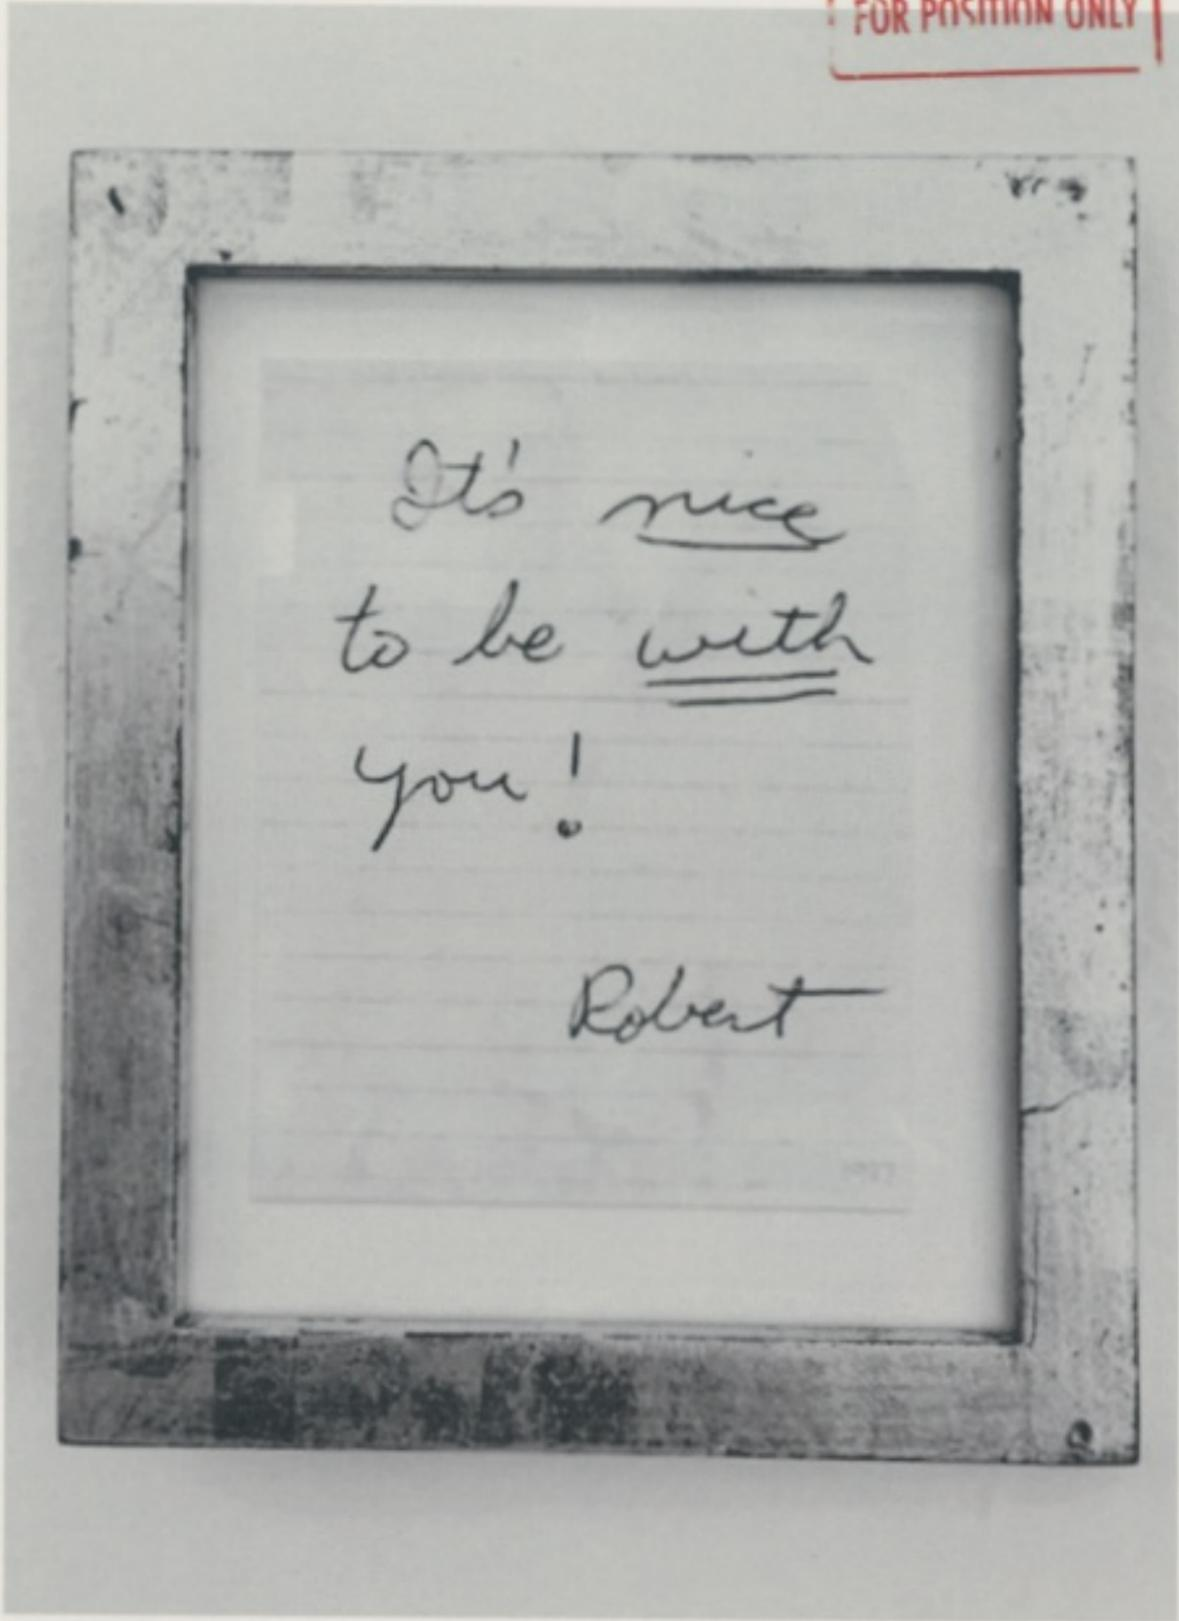 FOR POSITION ONLY
It's nice
to be with
you!
Robert